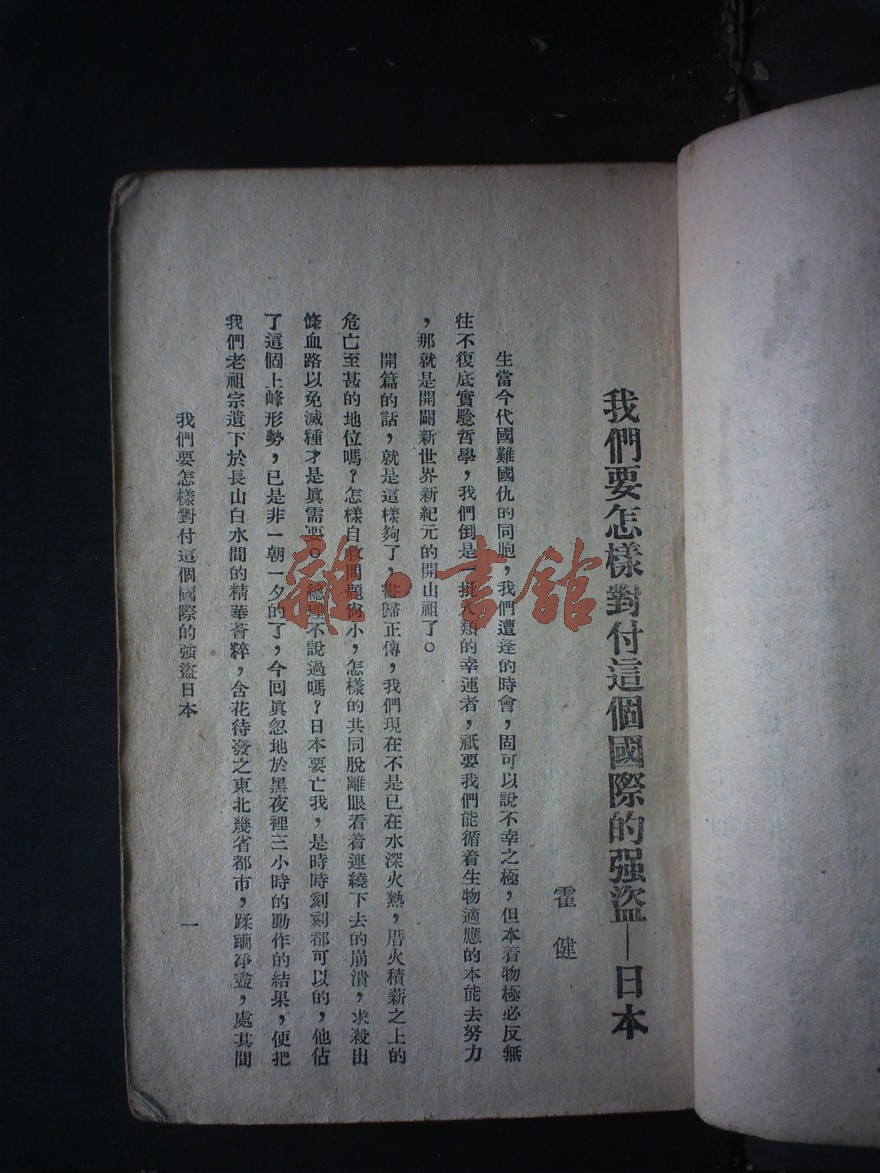 我們要怎樣對付這個國際的强盜—日本
霍健
生當今代國難國仇的同胞，我們遭逢的時會，固可以說不幸之極，但本着物極必反無
往不復底實驗哲學，我們倒是一批人類的幸運者，祇要我們能循着生物適應的本能去努力
，那就是開闢新世界新紀元的開山祖了。
開篇的話，就是這樣夠了，書歸正傳，我們現在不是已在水深火熱，厝火積薪之上的
危亡至甚的地位嗎？怎樣自救問題尙小，怎樣的共同脫離眼看着連繞下去的崩潰，求殺出
條血路以免滅種才是眞需要。總理不說過嗎？日本要亡我，是時時刻刻都可以的，他佔
了這個上峰形勢，已是非一朝一夕的了，今回眞忽地於黑夜裡三小時的動作的結果，便把
我們老祖宗遺下於長山白水間的精華薈粹，含花待發之東北幾省都市，蹂躪凈盡，處其間
我們要怎樣對付這個國際的強盜日本
一
雜·書館